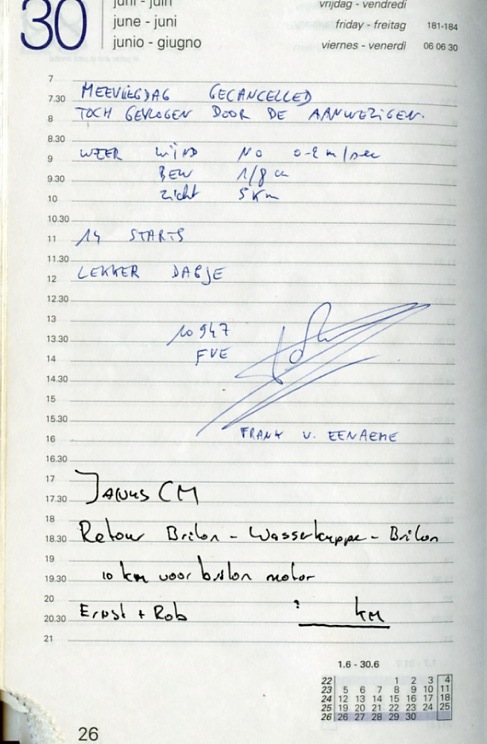 30
juni - juin
june - juni
junio - giugno
vrijdag - vendredi
friday - freitag 181-184
viernes - venerdì 06 06 30
7
7.30 MEEVLIEGDAG GECANCELLED
8 TOCH GEVLOGEN DOOR DE AANWEZIGEN.
8.30
9 WEER WIND NO 0-2 m/sec
9.30 BEW 1/8 cu
10 Zicht 5 Km
10.30
11 14 STARTS
11.30
12 LEKKER DAGJE
12.30
13 10947
13.30 FVE
14
14.30
15
15.30
16 FRANK V. EENAEME
16.30
17 Janus CM
17.30
18 Retour Brilon - Wasserkuppe - Brilon
18.30
19 10 km voor brilon motor
19.30
20 Ernst + Rob ? km
20.30
21
1.6 - 30.6
22 1 2 3 4
23 5 6 7 8 9 10 11
24 12 13 14 15 16 17 18
25 19 20 21 22 23 24 25
26 26 27 28 29 30
26